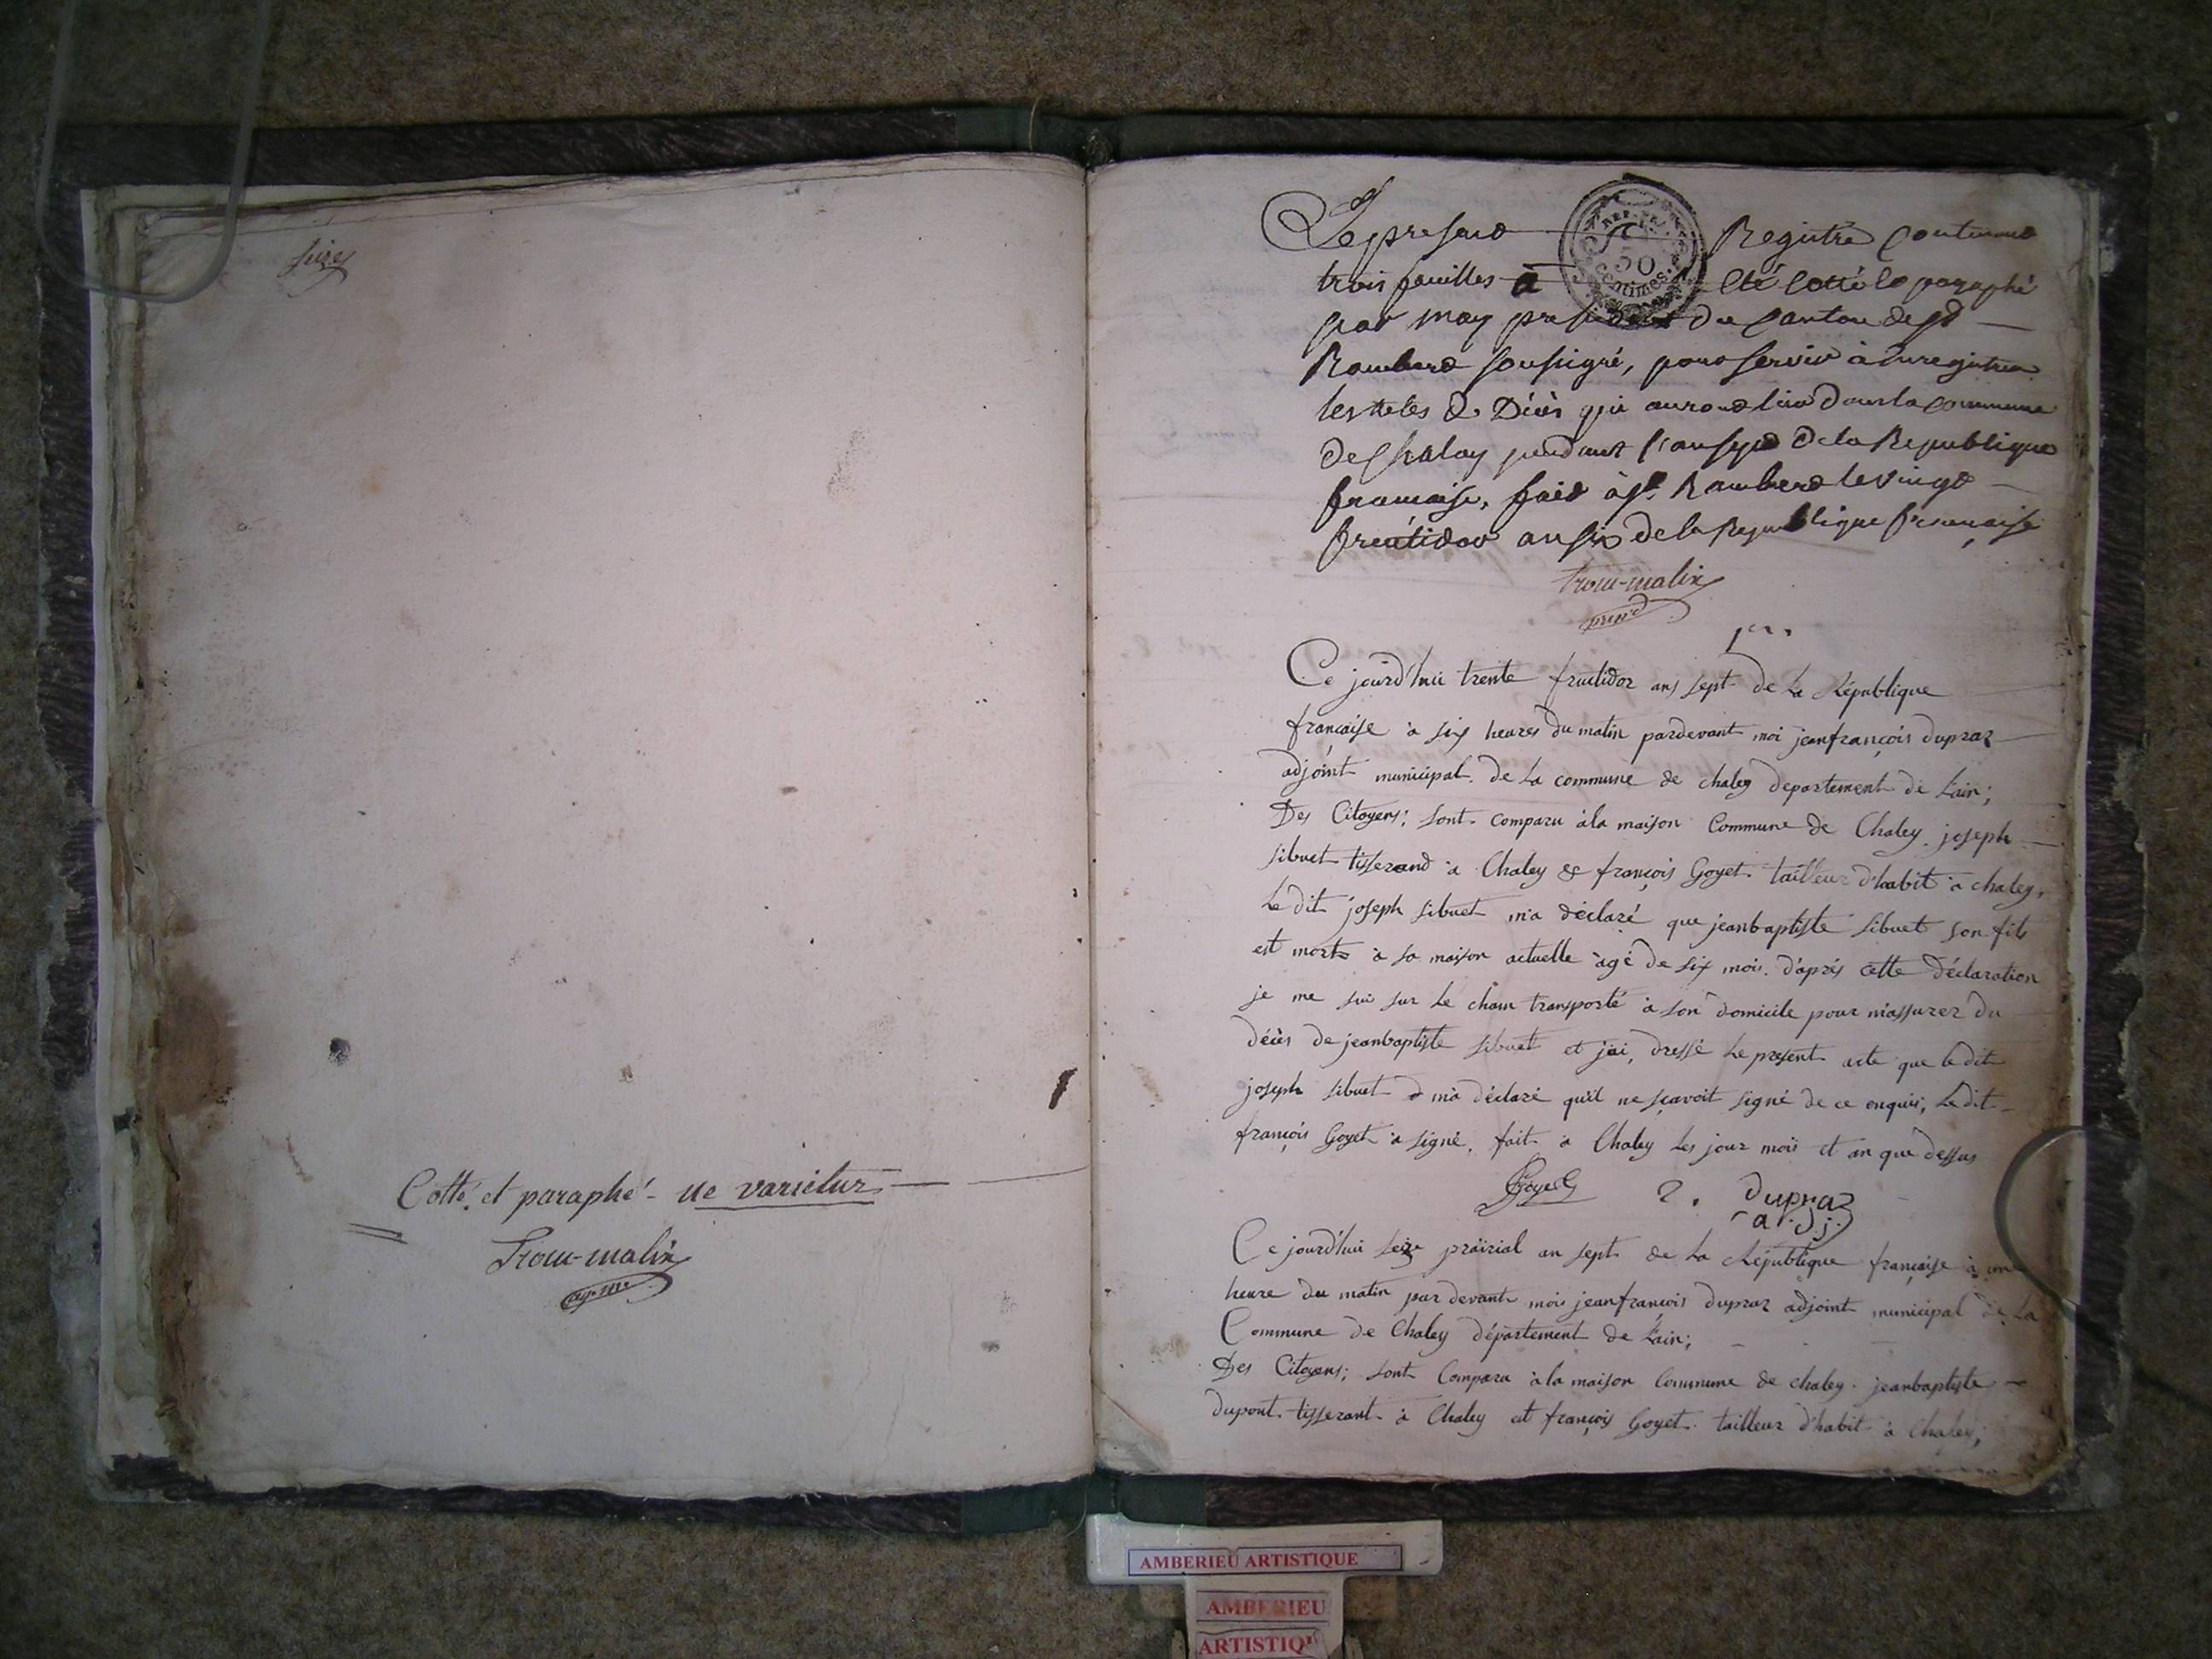 seize
Cotté et paraphé - ne varietur
Trocu-malix
Le present Registre contenant
trois feuilles à été cotté et paraphé
par moy president du canton de St
Rambert soussigné, pour servir à enregistrer
les actes de Décès qui auront lieu dans la commune
de Chaley pendant l'an sept de la Republique
francaise, fait à St. Rambert le vingt
fructidor an six de la Republique francaise
Trocu-malix
presid
50
Centimes
1er.
Ce jourd'hui trente fructidor ans sept de la République
française à six heures du matin pardevant moi jeanfrançois dupraz
adjoint municipal. de la commune de chaley departement de Lain;
Des Citoyens; sont comparu à la maison Commune de Chaley. joseph
sibuet tisserand à Chaley & françois Goyet tailleur d'habit à chaley,
Le dit joseph sibuet m'a déclaré que jeanbaptiste sibuet son fils
est morts à sa maison actuelle agé de six mois. d'aprés cette déclaration
je me sui sur le cham transporté à son domicile pour m'assurer du
décès de jeanbaptiste sibuet et j'ai, dressé le present acte que le dit
joseph sibuet m'a déclaré qu'il ne sçavoit signé de ce enquis; Le dit
françois Goyet à signé. fait à Chaley les jour mois et an que dessus
Goyet 2. dupraz
adj.
Ce jourd'hui seize prairial an sept de la République française à une
heure du matin par devant moi jeanfrancois dupraz adjoint municipal de La
Commune de Chaley département de Lain;
Des Citoyens; sont Comparu à la maison Commune de chaley. jeanbaptiste
dupont tisserant à Chaley et françois Goyet tailleur d'habit à Chaley;
AMBERIEU ARTISTIQUE
AMBERIEU
ARTISTIQU